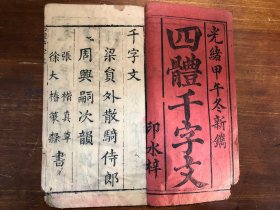 光緒甲午冬新鐫
四體千字文
印水梓
千字文
梁員外散騎侍郎
周興嗣次韻
張楷真草
徐大椿篆隸
書